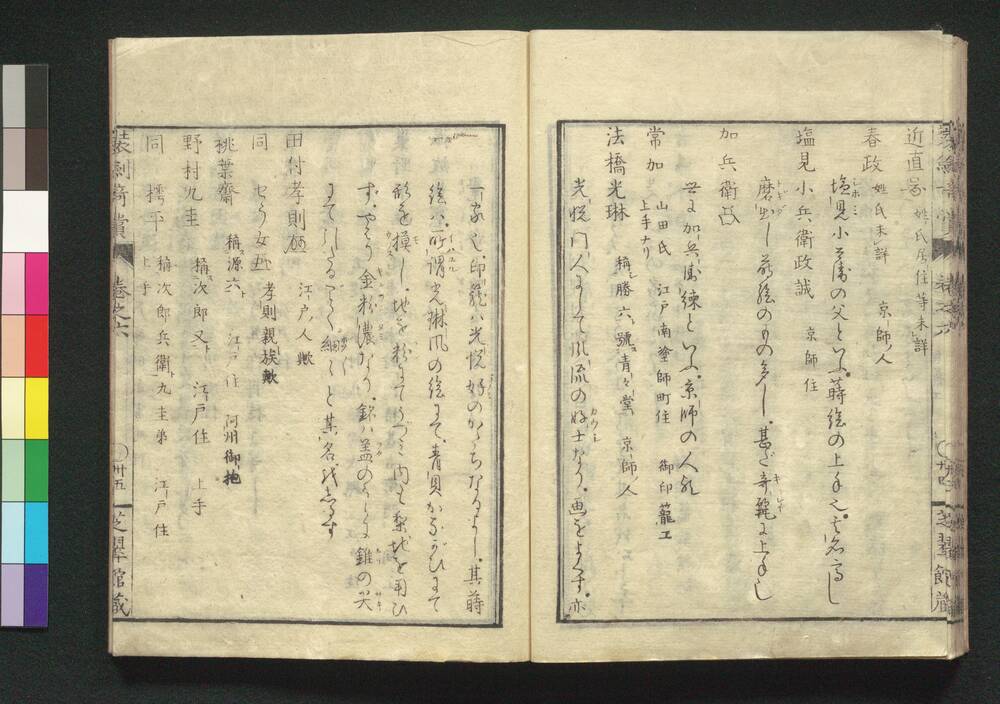 近直 姓氏居住等未詳
春政 姓氏未詳 京師ノ人
塩見小兵衛政誠 京師住
塩見小兵衛の父といふ蒔絵の上手也其名高し
磨出し蒔絵のもの多し甚だ奇麗に上手也
加兵衛
世に加兵衛練といふ京師の人
常加 山田氏 江戸南塗師町住 御印籠工
上手ナリ
法橋光琳 稱勝六號青々堂 京師ノ人
光悦門人にして風流の好士なり画をよくす亦
一家也印籠ハ光悦好のかたちなるよし其蒔
絵ハ所謂光琳風の絵にて青貝かながひにて
形を摸し地を粉にてつつミ内も梨地を用ひ
ずやはり金粉濃なり銘ハ蓋のうらに錐の尖
にて引たるごとく細く と其名をしるす
田付孝則 江戸ノ人歟
同 女 孝則親族歟
桃葉齋 稱源六ト 江戸住 阿州御抱
野村九圭 稱次郎又ト 江戸住 上手
同 樗平 稱次郎兵衛ト九圭弟 江戸住
上手
装劍奇賞 巻之六 ○卅五 芝翠館藏